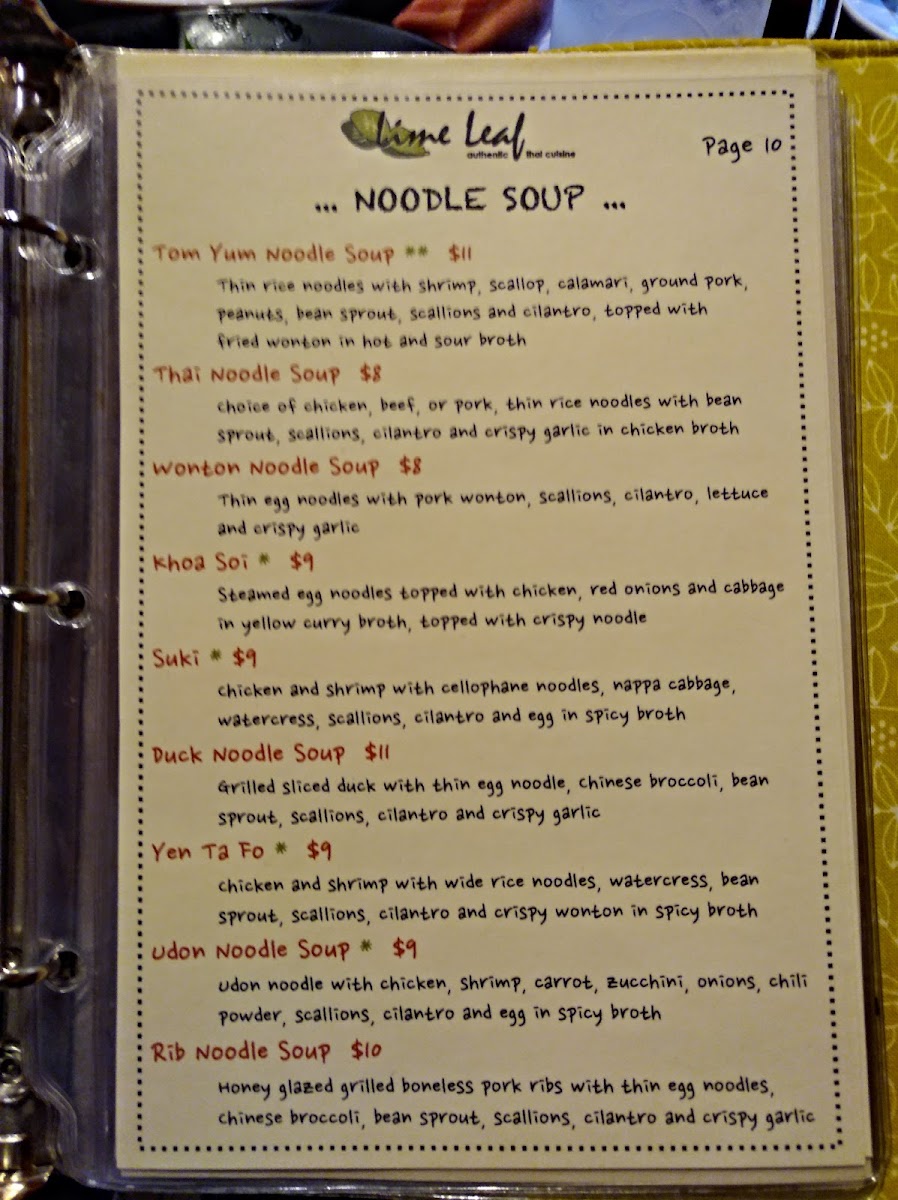 Lime Leaf
authentic thai cuisine
Page 10
... NOODLE SOUP ...
Tom Yum Noodle Soup ** $11
Thin rice noodles with shrimp, scallop, calamari, ground pork,
peanuts, bean sprout, scallions and cilantro, topped with
fried wonton in hot and sour broth
Thai Noodle Soup $8
choice of chicken, beef, or pork, thin rice noodles with bean
sprout, scallions, cilantro and crispy garlic in chicken broth
Wonton Noodle Soup $8
Thin egg noodles with pork wonton, scallions, cilantro, lettuce
and crispy garlic
Khoa Soi * $9
Steamed egg noodles topped with chicken, red onions and cabbage
in yellow curry broth, topped with crispy noodle
Suki * $9
chicken and shrimp with cellophane noodles, nappa cabbage,
watercress, scallions, cilantro and egg in spicy broth
Duck Noodle Soup $11
Grilled sliced duck with thin egg noodle, chinese broccoli, bean
sprout, scallions, cilantro and crispy garlic
Yen Ta Fo * $9
chicken and shrimp with wide rice noodles, watercress, bean
sprout, scallions, cilantro and crispy wonton in spicy broth
Udon Noodle Soup * $9
Udon noodle with chicken, shrimp, carrot, zucchini, onions, chili
powder, scallions, cilantro and egg in spicy broth
Rib Noodle Soup $10
Honey glazed grilled boneless pork ribs with thin egg noodles,
chinese broccoli, bean sprout, scallions, cilantro and crispy garlic